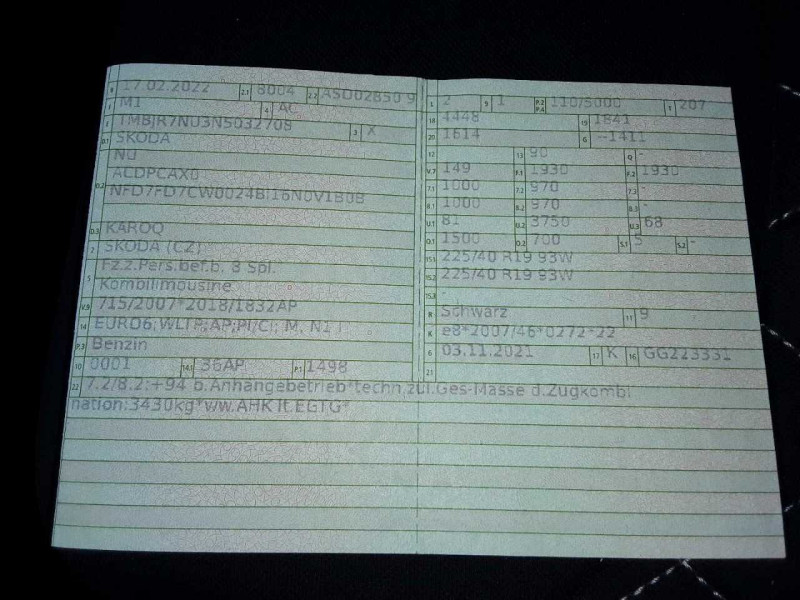 B 17.02.2022 2.1 8004 2.2 ASD02850 9
J M1 4 AC
E TMBJR7NU3N5032708 3 X
D.1 SKODA
NU
D.2 ACDPCAX0
NFD7FD7CW0024BI16N0V1B0B
D.3 KAROQ
2 SKODA (CZ)
5 Fz.z.Pers.bef.b. 8 Spl.
Kombilimousine
V.9 715/2007*2018/1832AP
14 EURO6;WLTP;AP;PI/CI; M, N1 I
P.3 Benzin
10 0001 14.1 36AP P.1 1498
L 2 9 1 P.2 P.4 110/5000 T 207
18 4448 19 1841
20 1614 G --1411
12 - 13 90 Q -
V.7 149 F.1 1930 F.2 1930
7.1 1000 7.2 970 7.3 -
8.1 1000 8.2 970 8.3 -
U.1 81 U.2 3750 U.3 68
O.1 1500 O.2 700 S.1 5 S.2 -
15.1 225/40 R19 93W
15.2 225/40 R19 93W
15.3 -
R Schwarz 11 9
K e8*2007/46*0272*22
6 03.11.2021 17 K 16 GG223331
21
22 7.2/8.2:+94 b.Anhängebetrieb*techn.zul.Ges-Masse d.Zugkombi
nation:3430kg*ww.AHK lt.EGTG*